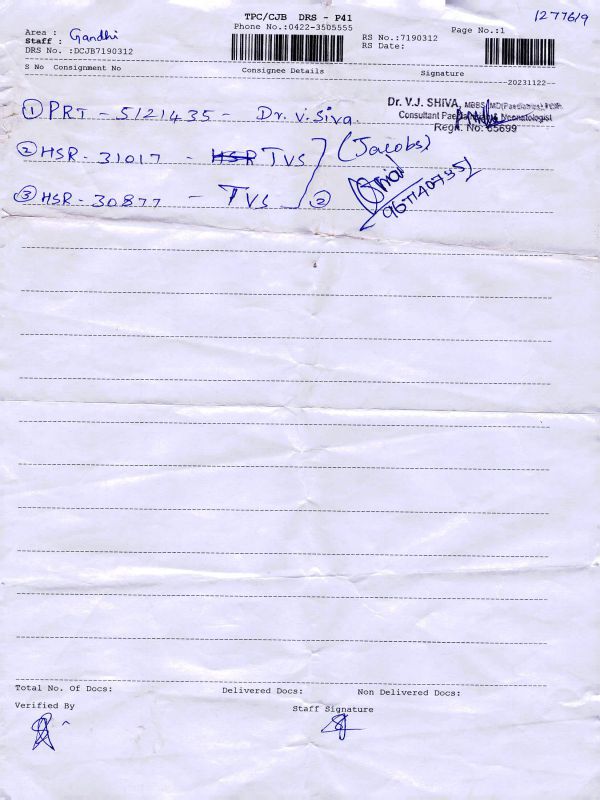 TPC/CJB DRS - P41
1277619
Phone No.:0422-3505555
Area : Gandhi
Staff :
DRS No. :DCJB7190312
RS No.:7190312
RS Date:
Page No.:1
S No Consignment No Consignee Details Signature
20231122
① PRT - 5121435 - Dr. V. Siva.
Dr. V.J. SHIVA, MBBS, MD(Paediatrics)
Consultant Paediatrician & Neonatologist
Regn. No: 65699
② HSR - 31017 - HSR TVS (Jacobs)
③ HSR - 30877 - TVS ②
9677140735
Total No. Of Docs: Delivered Docs: Non Delivered Docs:
Verified By Staff Signature